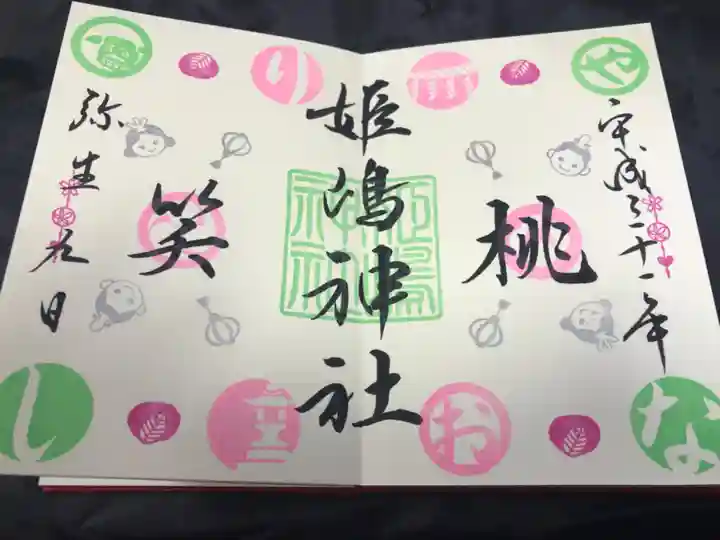 平成三十一年
桃
姫嶋神社
笑
弥生九日
姫嶋
神社
や
り
な
お
し